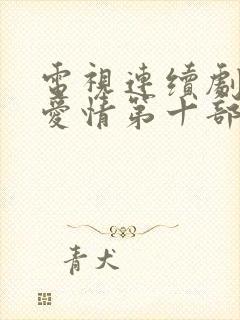 電視連續劇
愛情第十部
青犬